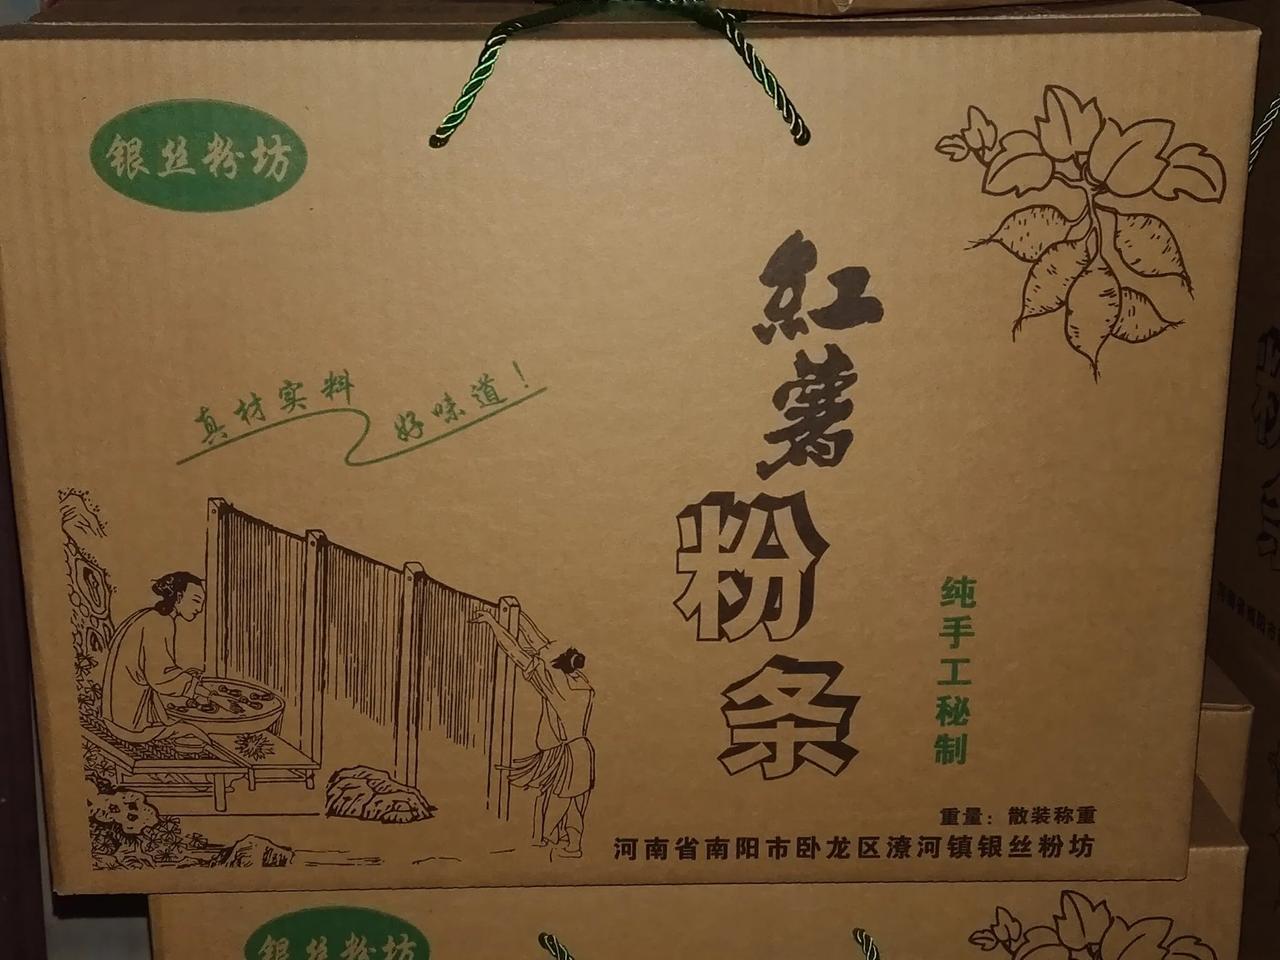 银丝粉坊
真材实料
好味道！
紅薯
粉条
纯手工秘制
重量：散装称重
河南省南阳市卧龙区潦河镇银丝粉坊
银丝粉坊